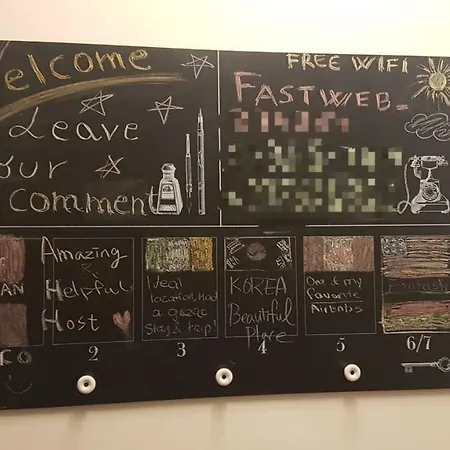 Welcome
Leave
our
comment
FREE WIFI
FASTWEB-
AN
Amazing
&
Helpful
Host
2
Ideal
location, Had
a great
Stay & trip!
3
KOREA
Beautiful
Place
4
One of my
favorite
Airbnbs
5
Fantastic
6/7